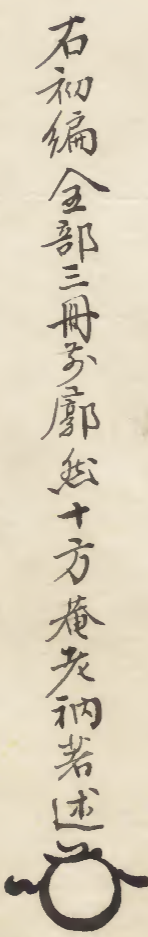 右初編全部三冊者廓然十方菴老衲著述